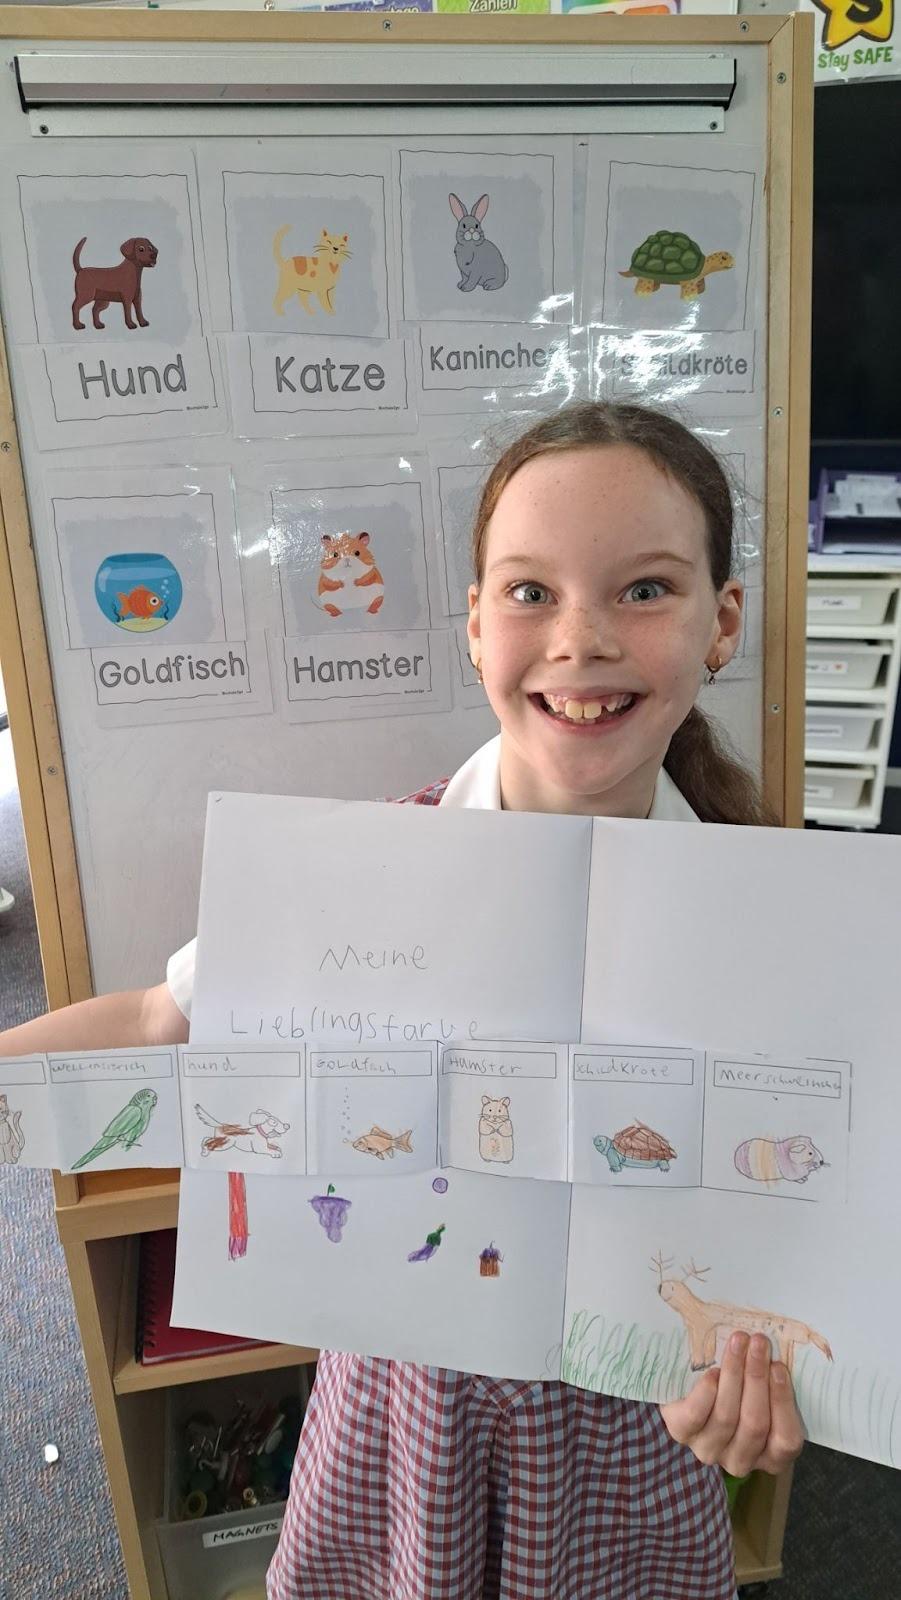 Zahlen
S
Stay SAFE
Hund
Katze
Kaninche
Schildkröte
Goldfisch
Hamster
Meine
Lieblingsfarve
Wellensitich
hund
Goldfisch
Hamster
Schildkrote
Meerschweinchen
MAGNETS